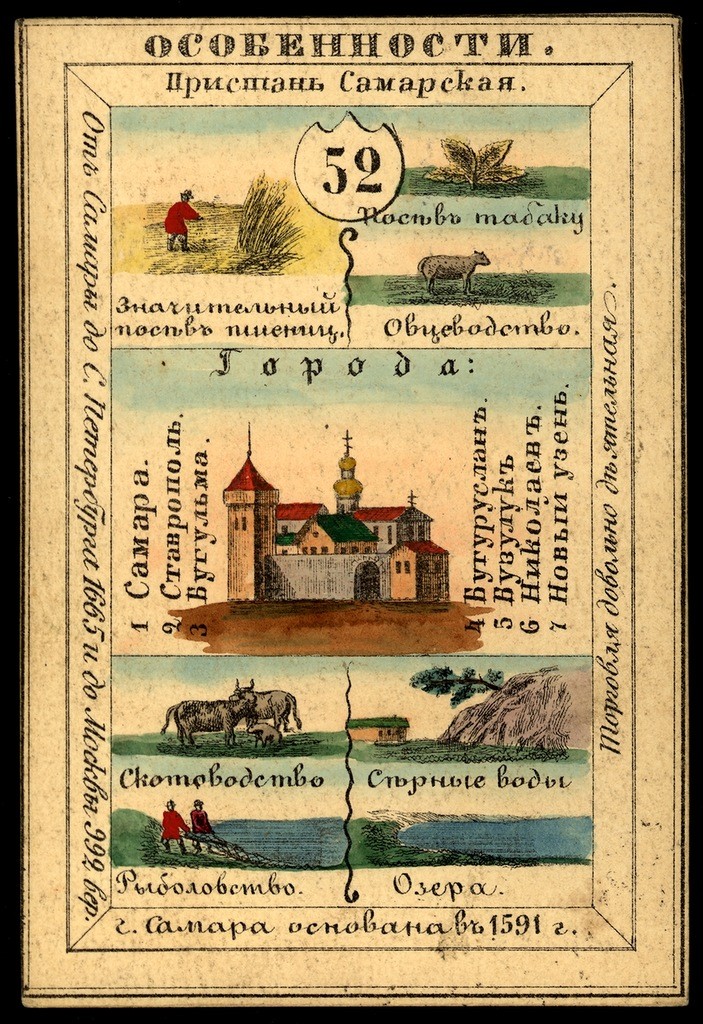 ОСОБЕННОСТИ.
Пристань Самарская.
Отъ Самары до С. Петербурга 1665 и до Москвы 992 вер.
52
Значительный
посѣвъ пшениц.
Посѣвъ табаку
Овцеводство.
Города:
1 Самара.
2 Ставрополь.
3 Бугульма.
4 Бугурусланъ.
5 Бузулукъ
6 Николаевъ.
7 Новый узень.
Торговля довольно дѣятельная.
Скотоводство
Сѣрные воды
Рыболовство.
Озера.
г. Самара основана въ 1591 г.